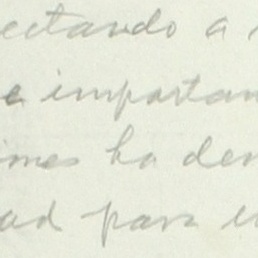 ectando a
e importan
imes ha den
ad para e